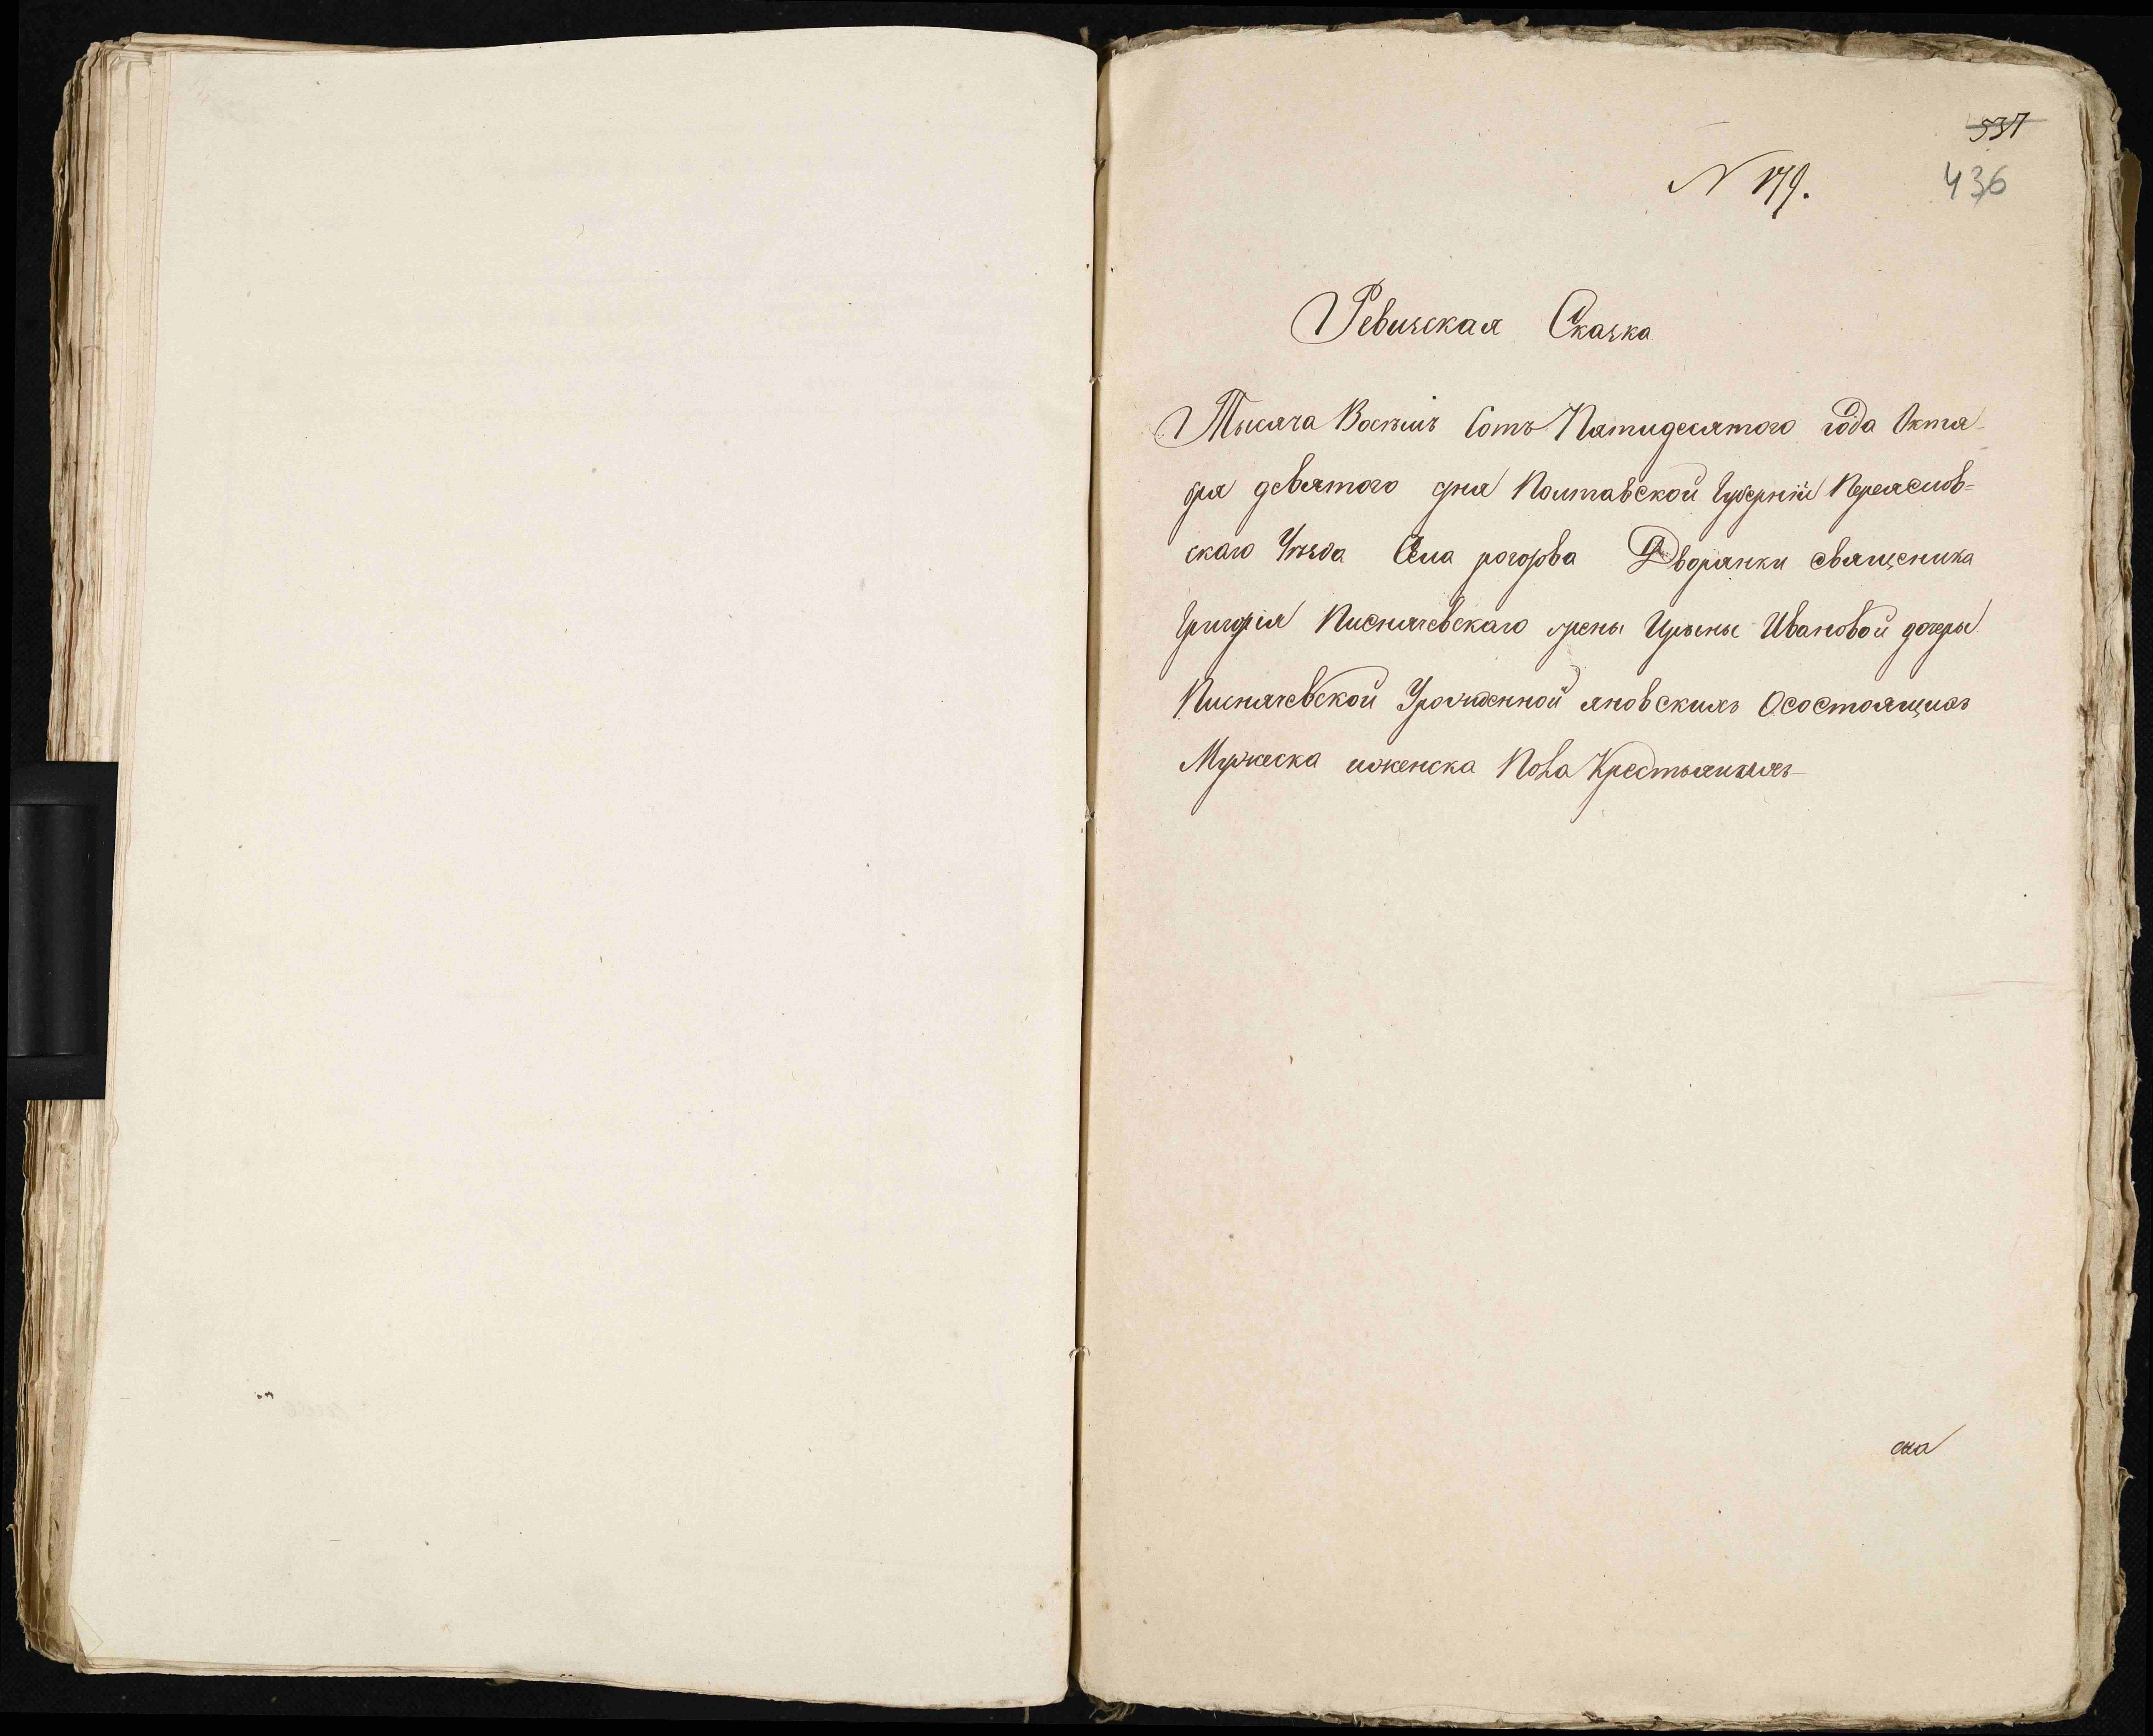 537
N 179.
436
Ревизская Сказка
Тысяча Восъмъ Сотъ Пятидесятого года Октя-
бря девятого дня Полтавской Губерніи Переяслов=
скаго Уѣзда Села рогозова Дворянки священика
Григорія Писначевскаго жены Ирыны Ивановой дочеры
Писначевской Урожденной яновскихъ Осостоящихъ
Мужеска иженска Пола Крестьянъхъ